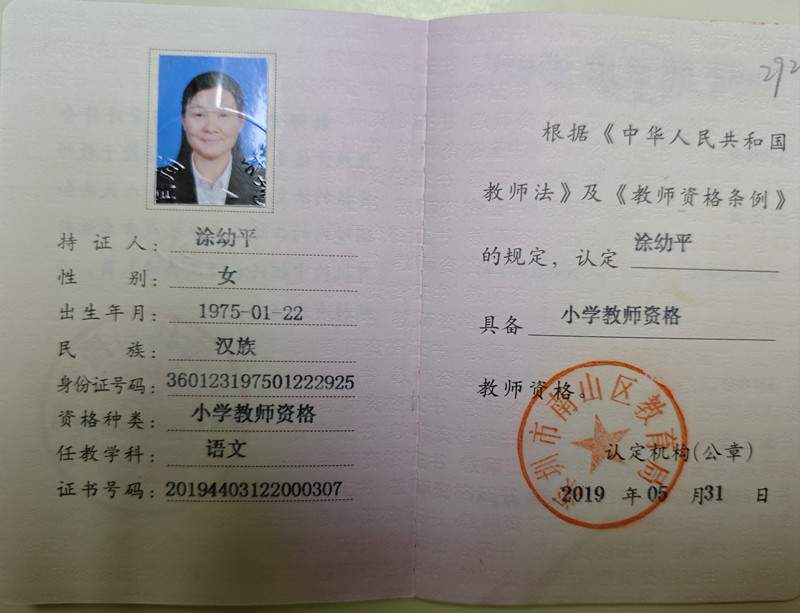 持证人：涂幼平
性别：女
出生年月：1975-01-22
民族：汉族
身份证号码：360123197501222925
资格种类：小学教师资格
任教学科：语文
证书号码：20194403122000307
292
根据《中华人民共和国
教师法》及《教师资格条例》
的规定，认定 涂幼平
具备 小学教师资格
教师资格。
深圳市南山区教育局
认定机构(公章)
2019 年 05 月 31 日